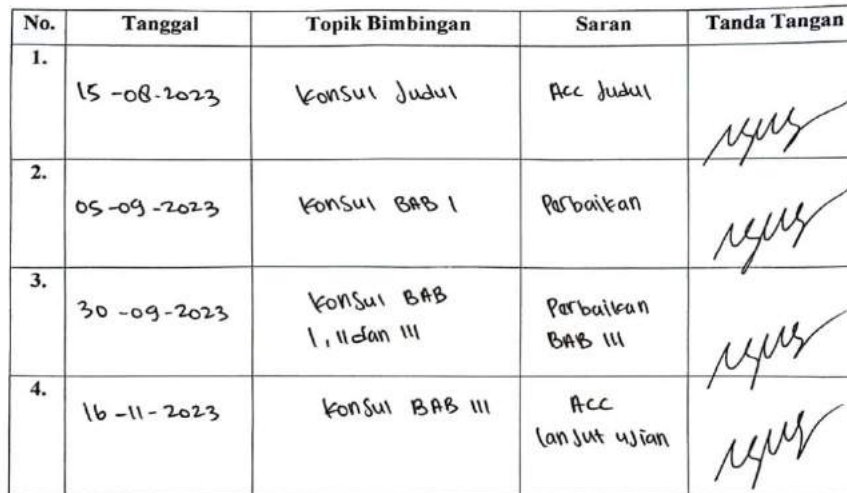 No. Tanggal Topik Bimbingan Saran Tanda Tangan
1.
15-08-2023 Konsul Judul Acc Judul
2.
05-09-2023 Konsul BAB I Perbaikan
3.
30-09-2023 Konsul BAB Perbaikan
I, II dan III BAB III
4.
16-11-2023 Konsul BAB III ACC
lanjut ujian